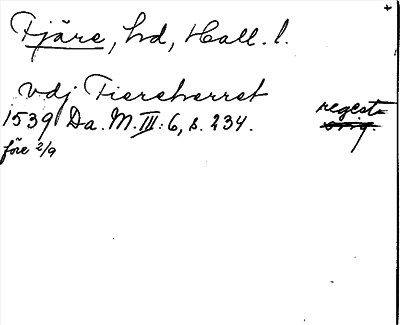 Fjäre, hd, Hall. l.
vdj Fiereherret
1539 Da. M. III: 6, s. 234. regest orig.
före 2/9